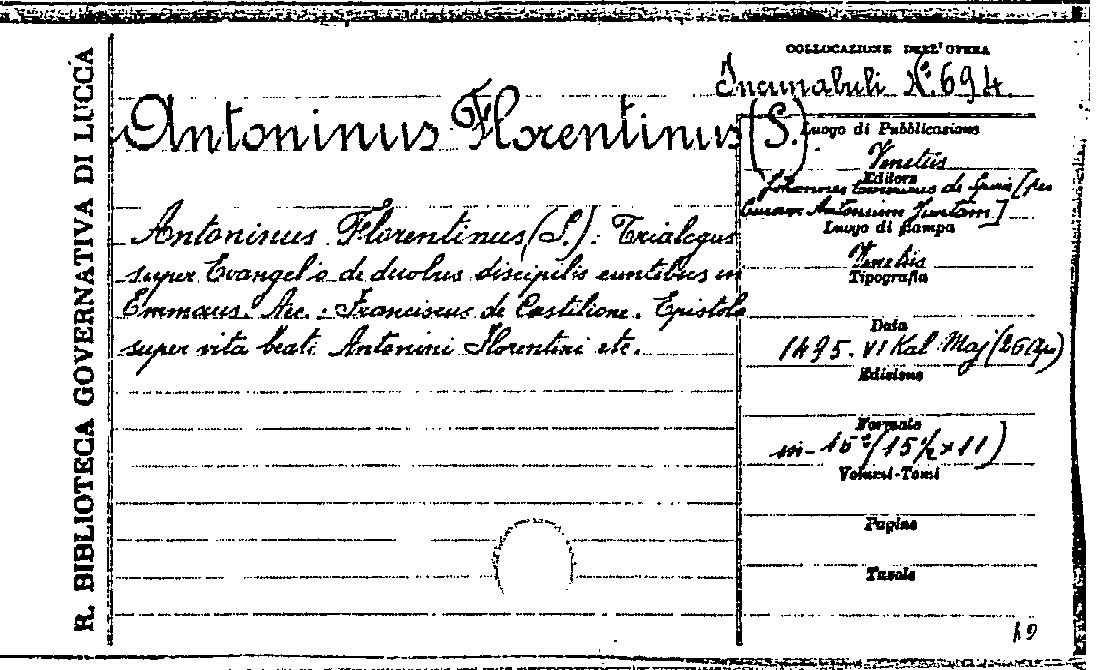 R. BIBLIOTECA GOVERNATIVA DI LUCCA
COLLOCAZIONE DELL'OPERA
Incunabuli N.º 694.
Antoninus Florentinus (S.)
Antoninus Florentinus (S.): Trialogus
super Evangelio de duobus discipulis euntibus in
Emmaus. Acc.: Franciscus de Castilione. Epistola
super vita beati Antonini Florentini etc.
Luogo di Pubblicazione
Venetiis
Editore
Johannes Emericus de Spira [per
Antonium Juntam]
Luogo di stampa
Venetiis
Tipografia
Data
1495. VI Kal Maj (26 Apr)
Edizione
Formato
in-16º (15½ x 11)
Volumi-Tomi
Pagine
Tavole